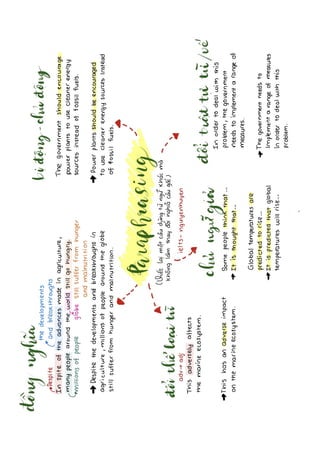 Paraphrasing
(Viết lại một câu dùng từ ngữ khác mà
không làm thay đổi nghĩa câu gốc)
ielts - nguyenhuyen
đồng nghĩa
Despite
the developments
and breakthroughs
In spite of the advances made in agriculture,
many people around the world still go hungry.
millions of people
globe
still suffer from hunger
and malnutrition
→ Despite the developments and breakthroughs in
agriculture, millions of people around the globe
still suffer from hunger and malnutrition.
bị động - chủ động
The government should encourage
power plants to use cleaner energy
sources instead of fossil fuels.
→ Power plants should be encouraged
to use cleaner energy sources instead
of fossil fuels.
đổi thể loại từ
adv → adj
This adversely affects
the marine ecosystem.
→ This has an adverse impact
on the marine ecosystem.
chủ ngữ giả
Some people think that...
→ It is thought that...
Global temperatures are
predicted to rise...
→ It is predicted that global
temperatures will rise...
đổi trật tự từ/vế
In order to deal with this
problem, the government
needs to implement a range of
measures.
→ The government needs to
implement a range of measures
in order to deal with this
problem.